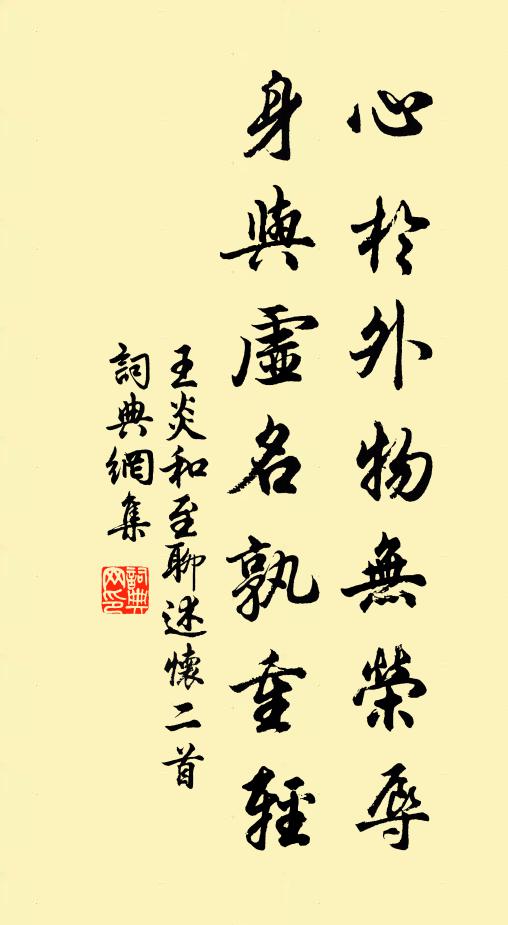 心於外物無榮辱
身與虛名孰重輕
王炎和至聊述懷二首
詞典網集
詞典
网印